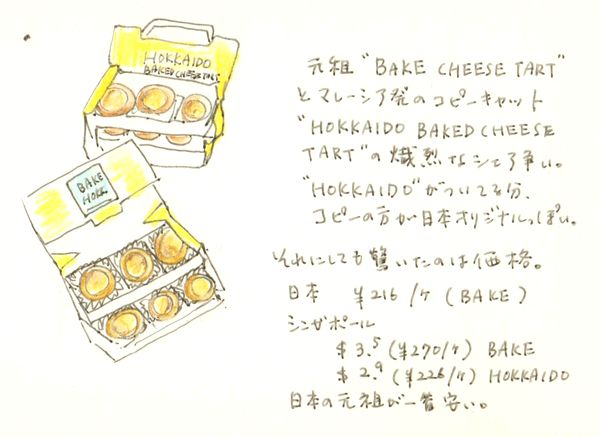 HOKKAIDO
BAKED CHEESE TART
BAKE
HOKK.
元祖 "BAKE CHEESE TART"
とマレーシア発のコピーキャット
"HOKKAIDO BAKED CHEESE
TART" の熾烈なシェア争い。
"HOKKAIDO" がついてる分、
コピーの方が日本オリジナルっぽい。
それにしても驚いたのは価格。
日本 ¥216/ヶ (BAKE)
シンガポール
$3.5 (¥270/ヶ) BAKE
$2.9 (¥226/ヶ) HOKKAIDO
日本の元祖が一番安い。